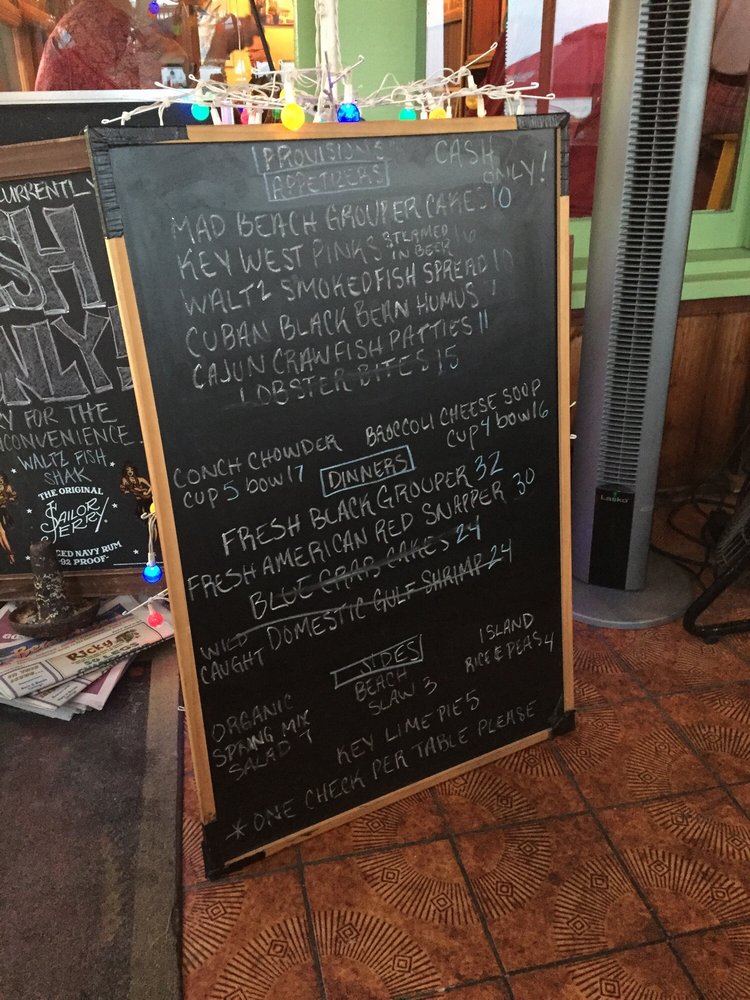 PROVISIONS
APPETIZERS
CASH
ONLY!
MAD BEACH GROUPER CAKES 10
KEY WEST PINKS STEAMED IN BEER 16
WALTZ SMOKED FISH SPREAD 10
CUBAN BLACK BEAN HUMUS
CAJUN CRAWFISH PATTIES 11
LOBSTER BITES 15
CONCH CHOWDER
CUP 5 BOWL 7
BROCCOLI CHEESE SOUP
CUP 4 BOWL 6
DINNERS
FRESH BLACK GROUPER 32
FRESH AMERICAN RED SNAPPER 30
BLUE CRAB CAKES 24
WILD CAUGHT DOMESTIC GULF SHRIMP 24
SIDES
ORGANIC
SPRING MIX
SALAD 7
BEACH
SLAW 3
ISLAND
RICE & PEAS 4
KEY LIME PIE 5
*ONE CHECK PER TABLE PLEASE
CURRENTLY
SH
NLY!
FOR THE
CONVENIENCE.
WALTZ FISH
SHAK
THE ORIGINAL
SAILOR
JERRY
ED NAVY RUM
92 PROOF
RICKY
Lasko